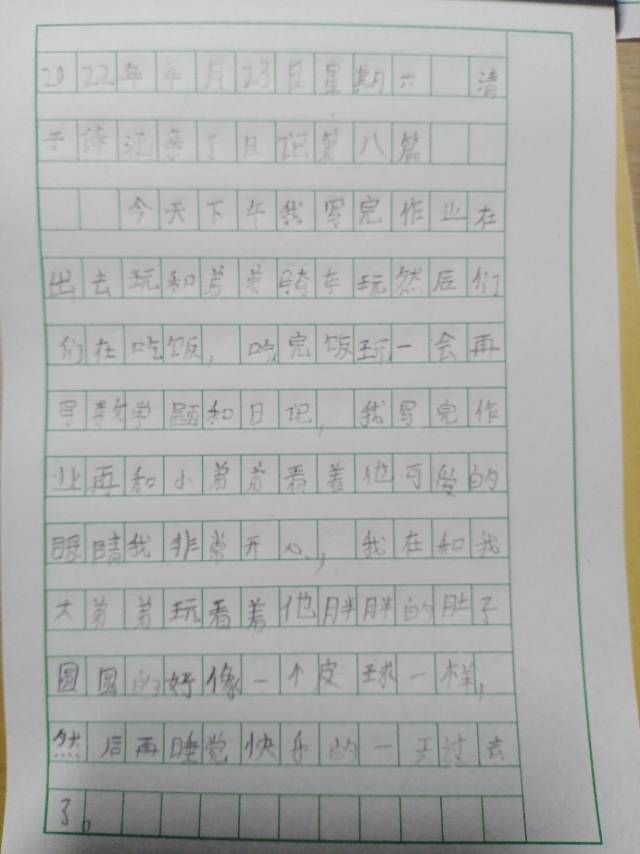 2022年4月23日星期六 清
日记第八篇
今天下午我写完作业在
出去玩和弟弟骑车玩然后们
们在吃饭，吃完饭玩一会再
写数学题和日记，我写完作
业再和小弟弟看着他可爱的
眼睛我非常开心，我在和我
大弟弟玩看着他胖胖的肚子
圆圆的好像一个皮球一样，
然后再睡觉快乐的一天过去
了。